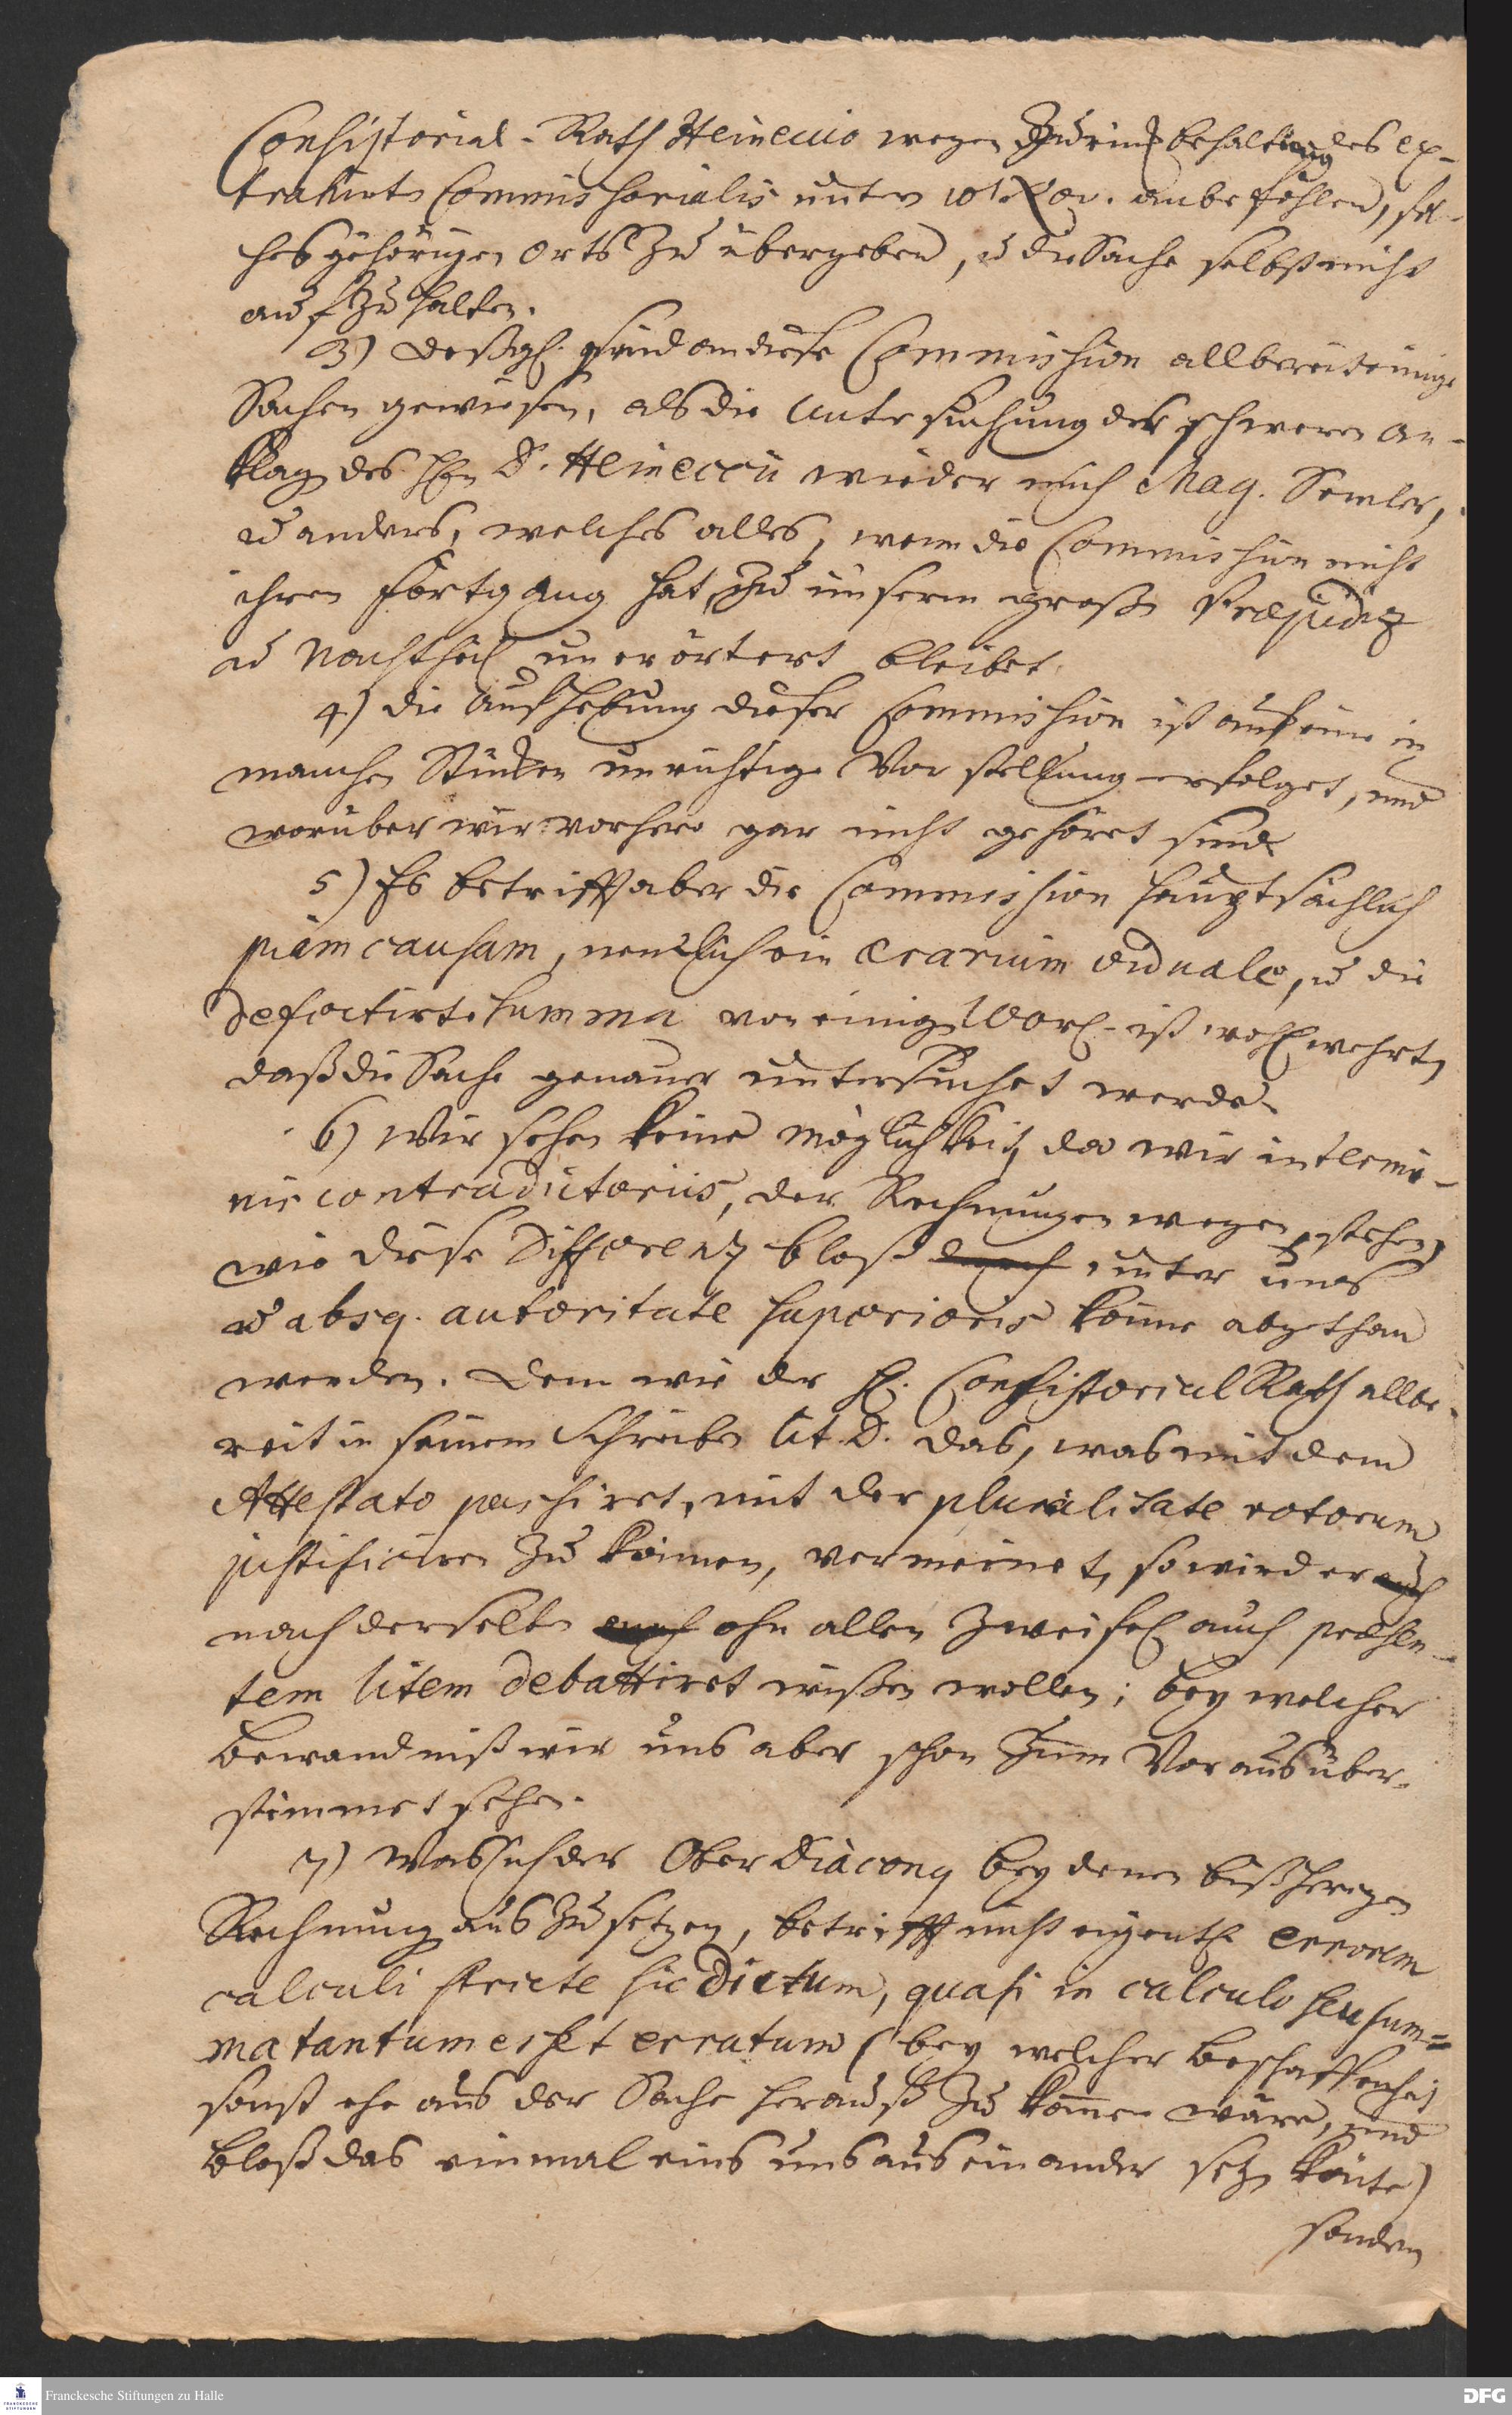 Consistorial-Rath Heineccio wegen Zurückbehaltung des ex-
trahirten Commissorialis unter 10 t. Nov. anbefohlen, sol-
ches gehörigen Orts zu übergeben, u die Sache selbst nicht
auf zu halten.
3) Deßgl. sind an diese Commission allbereit einige
Sachen gewiesen, als die Untersuchung der schweren An-
klage des Hn D. Heineccii wieder mich Mag. Semler,
u anders, welches alles, wenn die Commission nicht
ihren Fortgang hat, zu unserm großen Præjudiz
u Nachtheil unerörtert bleibet.
4) Die Aufhebung dieser Commission ist auf eine in
manchen Stücken unrichtige Vorstellung erfolget, und
worüber wir vorhero gar nicht gehöret sind.
5) Es betrifft aber die Commission hauptsächlich
piam causam, nemlich ein ærarium viduale, u die
defectirte Summa von einigen 100 rl. ist wohl wehrt,
daß die Sache genauer untersuchet werde.
6) Wir sehen keine Möglichkeit, da wir in termi-
nis contradictoriis, der Rechnungen wegen, stehen,
wie diese Differenz bloß durch unter uns
u absq. autoritate superioris könne abgethan
werden. Denn wie der H. Consistorial Rath allbe-
reit in seinem Schreiben lit. D. das, was mit dem
Attestato passiret, mit der pluralitate votorum
justificiren zu können, vermeinet, so wird er auch
nach derselben auch ohn allen Zweifel auch præsen-
tem litem debattiret wißen wollen; bey welcher
Bewandniß wir uns aber schon zum Voraus über-
stimmet sehen.
7) Was ich der Ober Diaconq bey denen bißherigen
Rechnung auszusetzen, betrifft nicht eigentl. errorem
calculi stricte sic dictum, quasi in calculo seu sum-
ma tantum esset erratum (bey welcher Beschaffenheit
sonst ehe aus der Sache herauß zu kommen wäre, und
bloß das einmal eins uns aus einander setzen könte)
sondern
Franckesche Stiftungen zu Halle
DFG